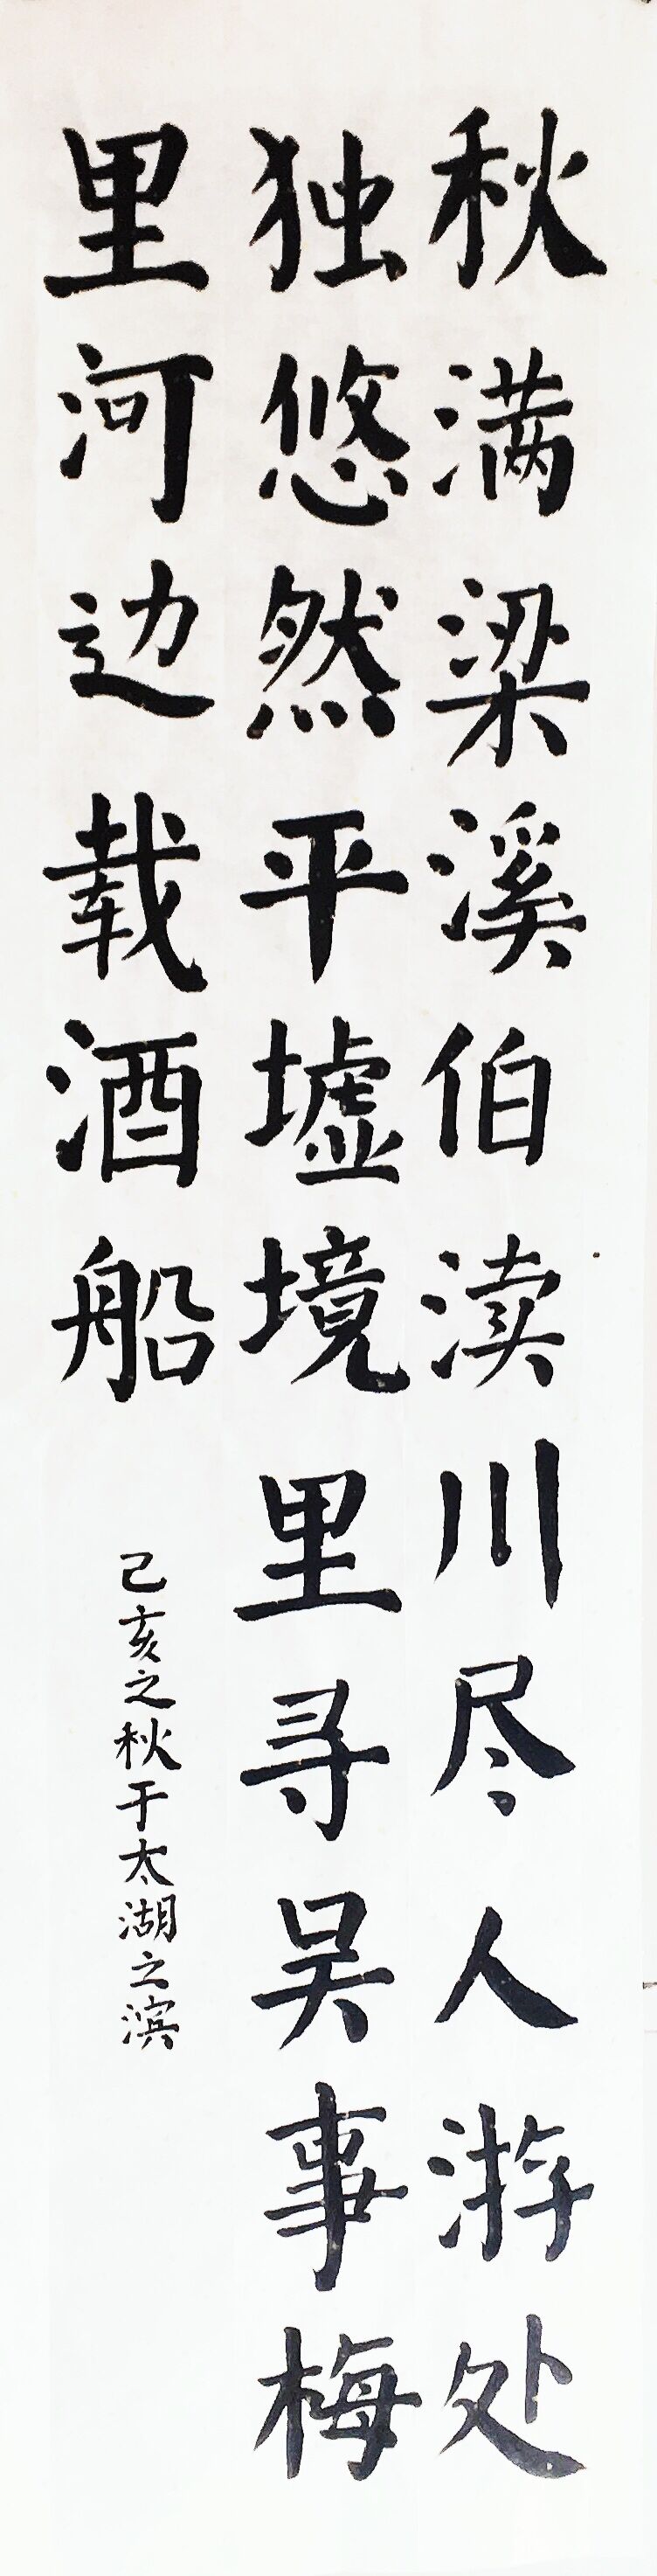 秋满梁溪伯渎川尽人游处
独悠然平墟境里寻吴事梅
里河边载酒船
己亥之秋于太湖之滨